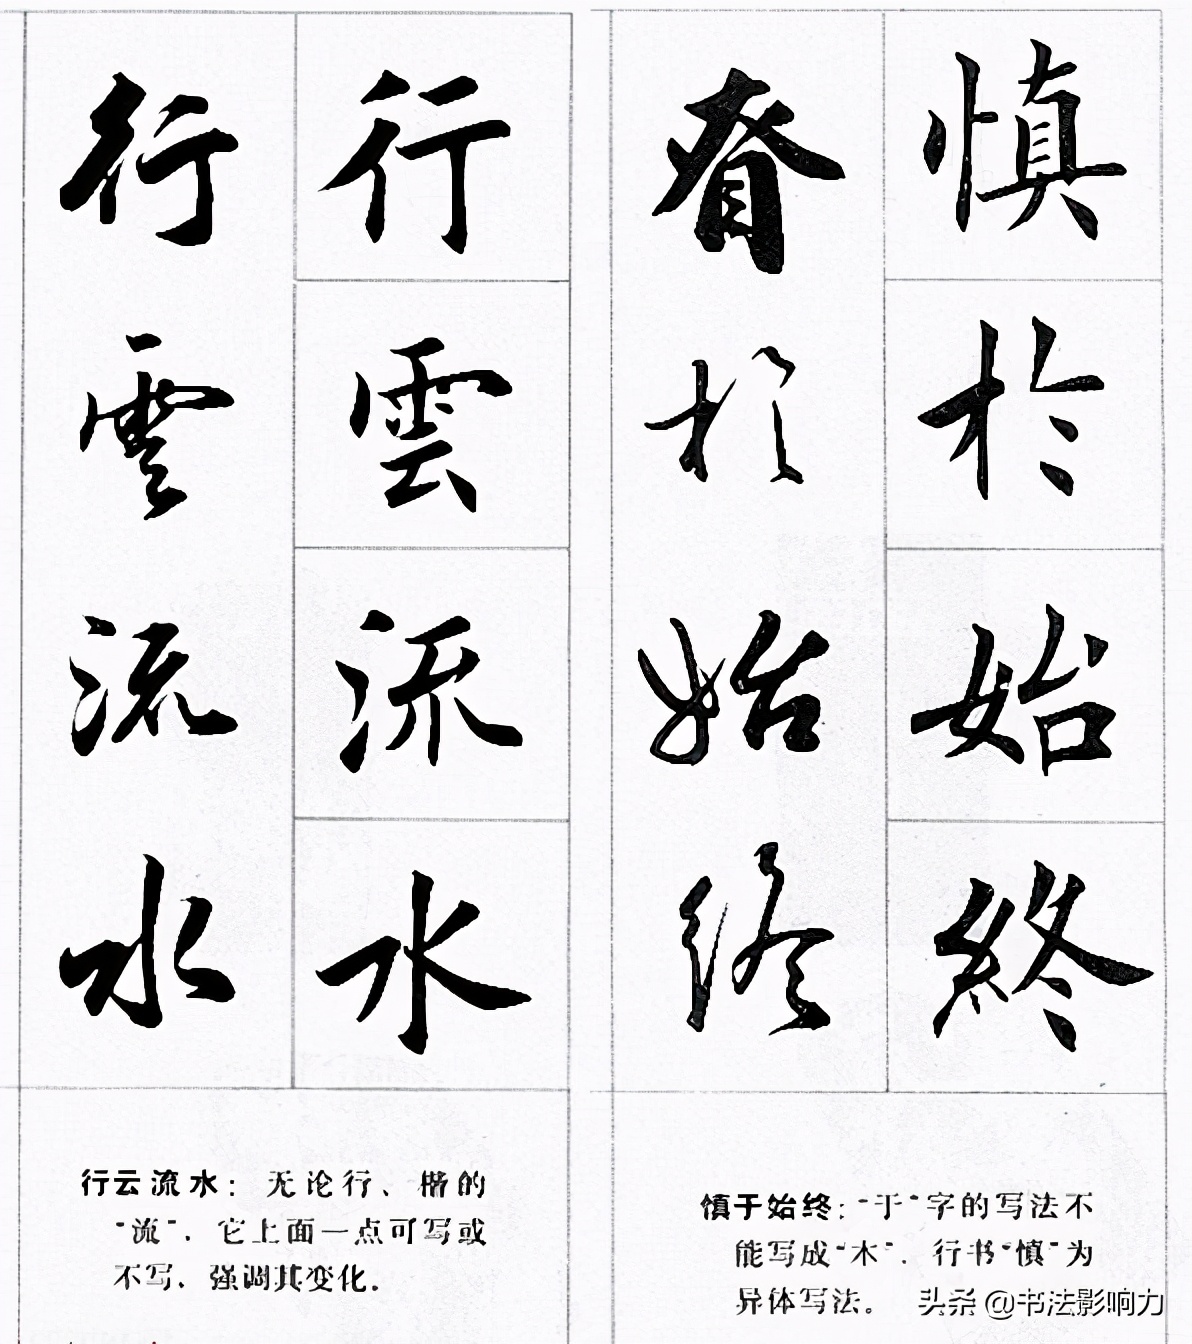 行雲流水
行雲流水
行云流水：无论行、楷的
“流”，它上面一点可写或
不写，强调其变化。
眘於始終
慎於始終
慎于始终：“于”字的写法不
能写成“木”，行书“慎”为
异体写法。
头条 @书法影响力